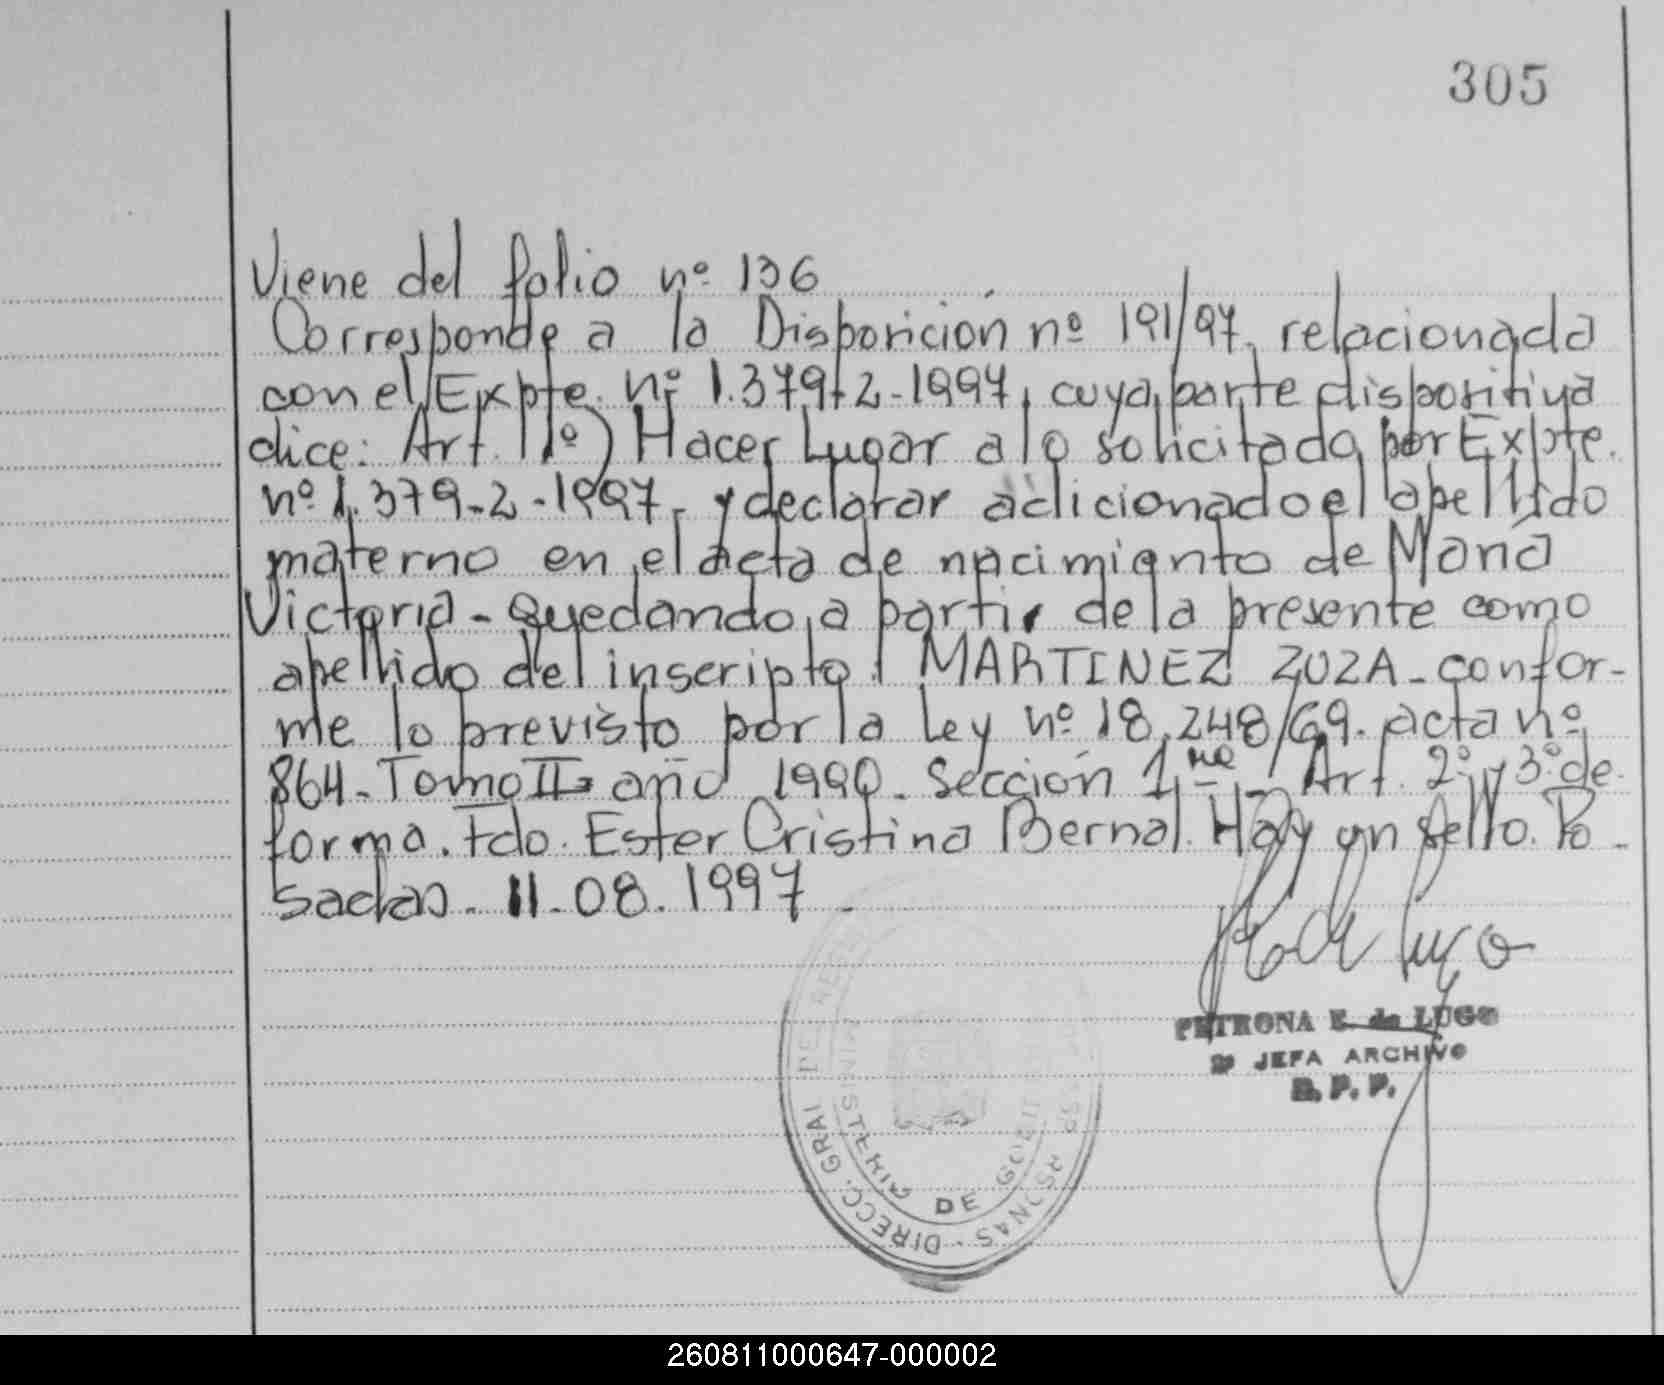 305
Viene del folio nº 136
Corresponde a la Disposición nº 191/97, relacionada
con el Expte. nº 1.379-2-1997, cuya parte dispositiva
dice: Art. 1º) Hacer Lugar a lo solicitado por Expte.
nº 1.379-2-1997, y declarar adicionado el apellido
materno en el acta de nacimiento de María
Victoria - Quedando a partir de la presente como
apellido del inscripto: MARTINEZ ZUZA - confor-
me lo previsto por la Ley nº 18.248/69. acta nº
864 - Tomo II año 1990 - Sección 1ra - Art. 2º y 3º de
forma. Fdo. Ester Cristina Bernal. Hay un sello. Po-
sadas. 11-08.1997.
PETRONA E. de LUGO
2º JEFA ARCHIVO
R. P. P.
DIRECC. GRAL DE
PERSONAS
MINISTERIO DE GOBIERNO
260811000647-000002